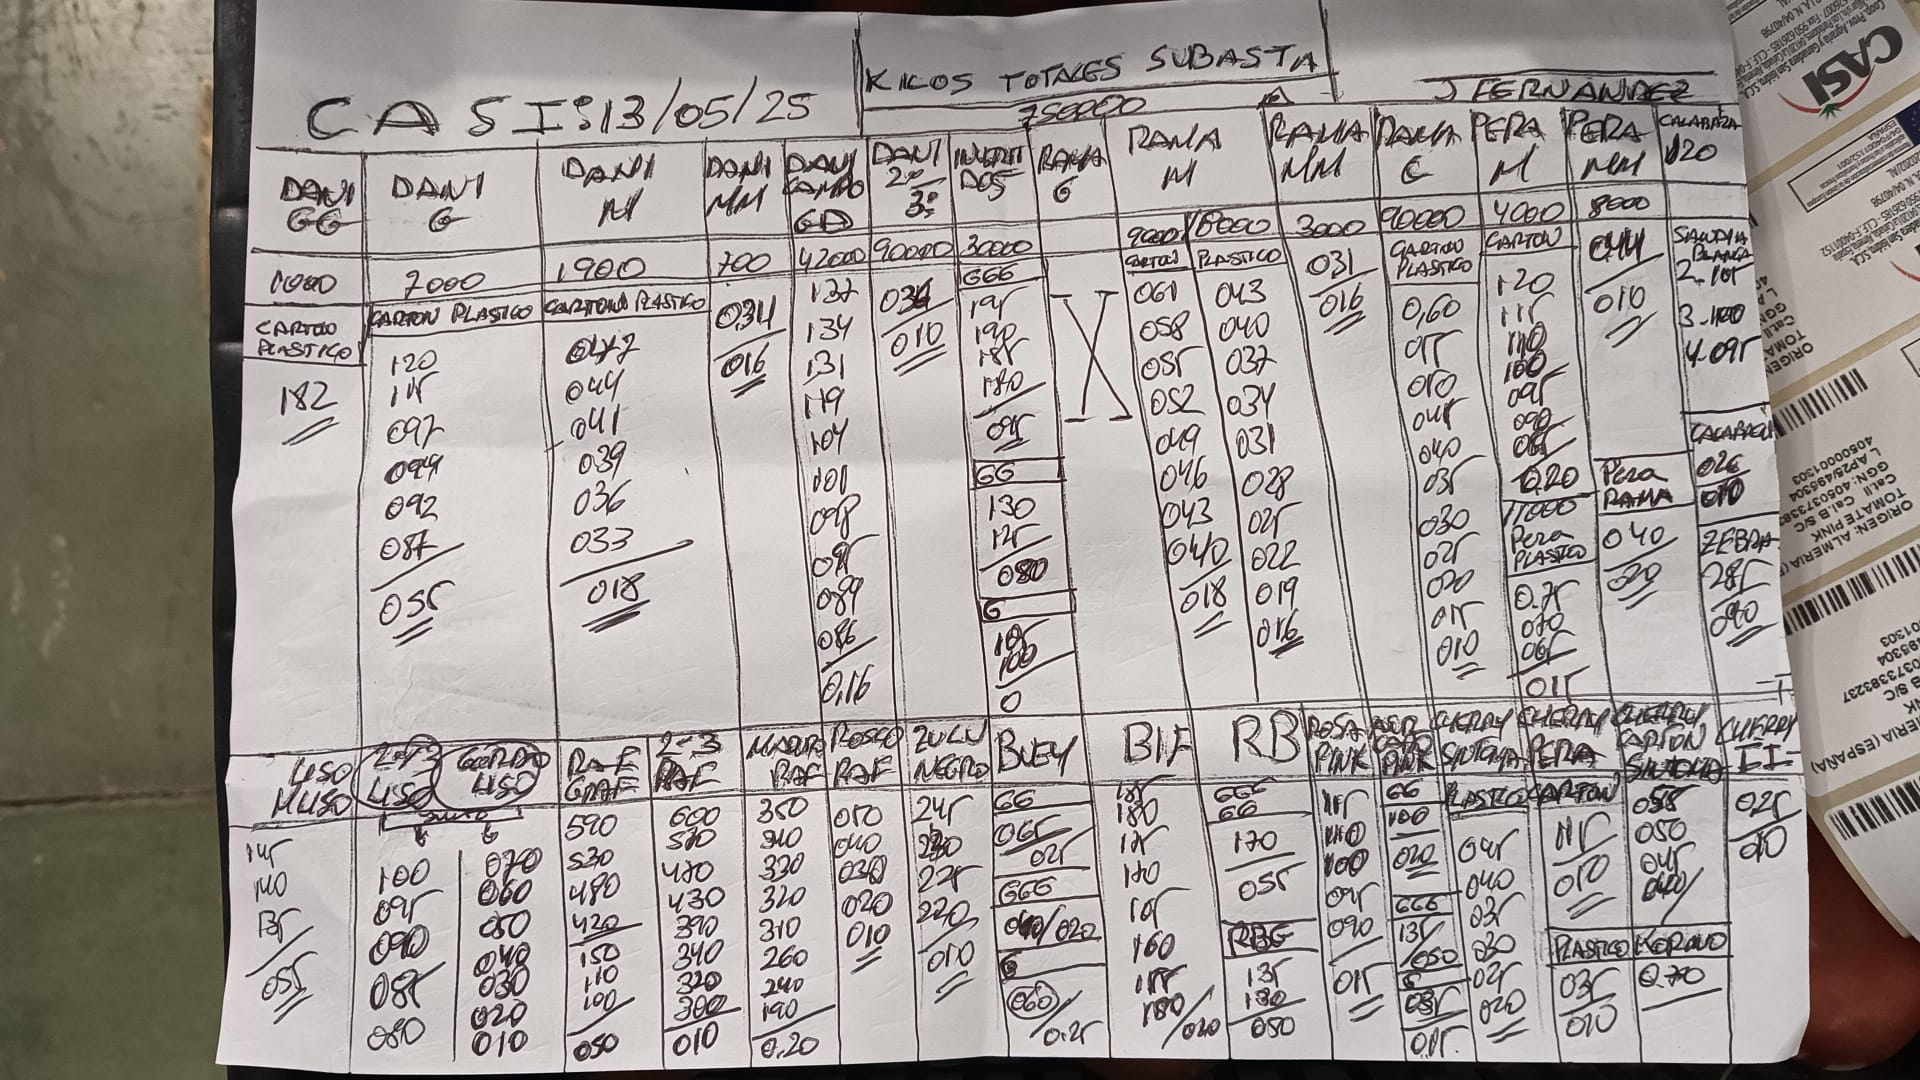 KILOS TOTALES SUBASTA
CASI: 13/05/25
750000
J FERNANDEZ
DANI GG
DANI G
DANI M
DANI MM
DANI CAMPO GD
DANI 2ª 3ª
INVERTIDOS
RAMA G
RAMA M
RAMA MM
RAMA C
PERA M
PERA MM
CALABAZA
120
1000
7000
1900
700
42000
90000
30000
9000
18000
3000
90000
4000
8000
CARTON PLASTICO
182
CARTON PLASTICO
120
115
097
094
092
087
055
CARTON PLASTICO
047
044
041
039
036
033
018
034
016
137
134
131
119
104
101
098
095
089
086
0,16
034
010
GGG
195
190
185
180
095
GG
130
125
080
G
105
100
0
CARTON
061
058
055
052
049
046
043
040
018
PLASTICO
043
040
037
034
031
028
025
022
019
016
031
016
CARTON PLASTICO
0,60
055
050
045
040
035
030
025
020
015
010
CARTON
120
115
110
100
095
090
085
0.20
17000
Pera PLASTICO
0.75
070
065
015
044
010
Pera RAMA
040
020
SANDIA BLANCA
2.105
3.100
4.095
CALABACIN
026
010
ZEBRA
285
090
LISO M LISO
145
140
135
055
2ª Y 3 LISO
100
095
090
085
080
GORDO LISO
070
060
050
040
030
020
010
RAF G RAF
590
530
480
420
150
110
100
050
2-3 RAF
600
570
470
430
390
340
320
300
010
MADURO RAF
350
340
330
320
310
260
240
190
0.20
ROSCO RAF
050
040
030
020
010
ZULU NEGRO
245
230
225
220
010
BUEY
GG
065
025
GGG
040/020
G
060
0.25
BIF
185
180
175
170
165
160
155
150/020
RB
GGG
GG
170
055
RBG
135
130
050
ROSA PINK
115
110
100
095
090
015
PINK
GG
100
020
GGG
135
050
G
035
015
CHERRY SINTOMA
PLASTICO
045
040
035
030
025
020
CHERRY PERA
CARTON
115
010
PLASTICO
035
010
CHERRY CARTON SINTOMA
055
050
045
040
KORDNO
0.70
CHERRY II
025
010
CASI
ORIGEN: ALMERIA (ESPAÑA)
TOMATE PINK
Cat.II Cal.B S/C
L AP25/495304
4050001303